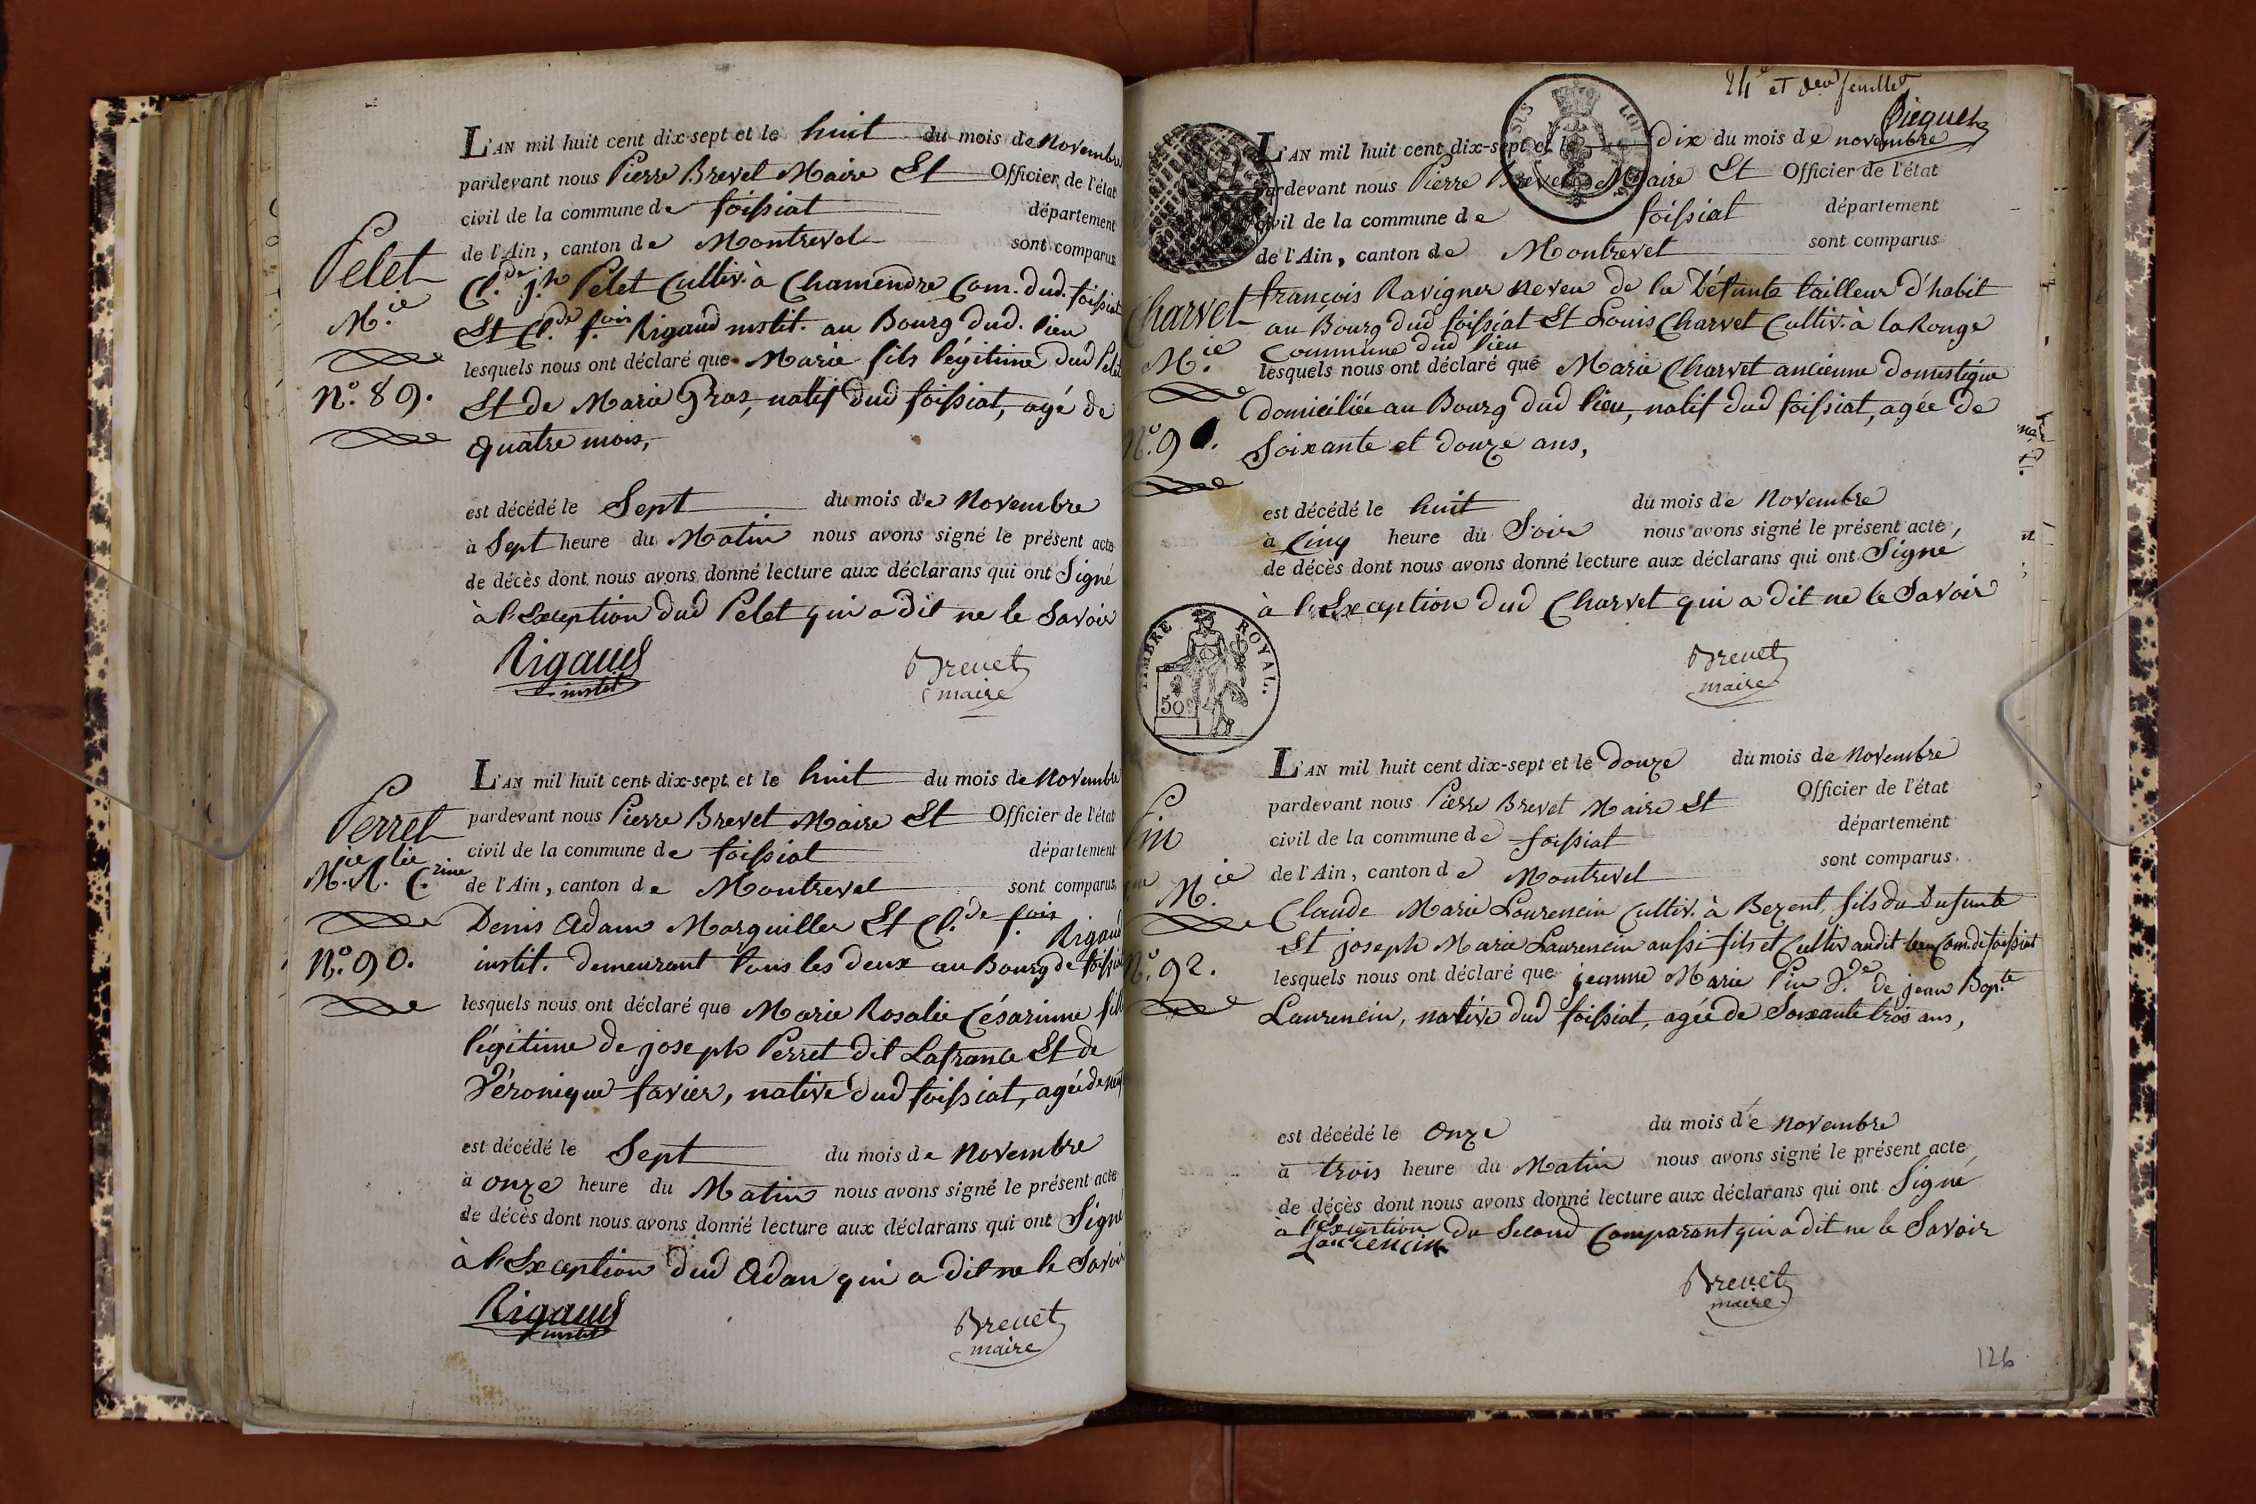 L'AN mil huit cent dix-sept et le huit du mois de Novembre
pardevant nous Pierre Brevet Maire Et Officier de l'état
civil de la commune de foissiat département
de l'Ain, canton de Montrevel sont comparus
Pelet
Cl.de j.h Pelet Cultiv. à Chamendre Com. dud. foissiat
M.ie
Et Cl.de f.ois Rigaud instit. au Bourg dud. lieu
lesquels nous ont déclaré que Marie fils légitime dud Pelet
N.o 89.
Et de Marie Gras, natif dud foissiat, agé de
quatre mois,
est décédé le Sept du mois de Novembre
à Sept heure du Matin nous avons signé le présent acte
de décès dont nous avons donné lecture aux déclarans qui ont Signé
à l'Exception dud Pelet qui a dit ne le Savoir
Rigaud
instit
Brevet
maire
L'AN mil huit cent dix-sept et le huit du mois de Novembre
Perret
pardevant nous Pierre Brevet Maire Et Officier de l'état
civil de la commune de foissiat département
M.ie R.lie C.rine
de l'Ain, canton de Montrevel sont comparus
Denis Adam Marguiller Et Cl.de f.ois Rigaud
N.o 90.
instit. demeurant tous les deux au Bourg de foissiat
lesquels nous ont déclaré que Marie Rosalie Césarinne fille
légitime de joseph Perret dit Lafrance Et de
Véronique favier, native dud foissiat, agée de
est décédé le Sept du mois de Novembre
à onze heure du Matin nous avons signé le présent acte
de décès dont nous avons donné lecture aux déclarans qui ont Signé
à l'Exception dud Adam qui a dit ne le Savoir
Rigaud
instit
Brevet
maire
24e et feuillet
L'AN mil huit cent dix-sept et le dix du mois de novembre
pardevant nous Pierre Brevet Maire Et Officier de l'état
civil de la commune de foissiat département
de l'Ain, canton de Montrevel sont comparus
Charvet
françois Ravigner neveu de la Défunte tailleur d'habit
au Bourg dud foissiat Et Louis Charvet Cultiv. à la Ronge
Commune dud lieu
M.ie
lesquels nous ont déclaré que Marie Charvet ancienne domestique
domiciliée au Bourg dud lieu, natif dud foissiat, agée de
Soixante et douze ans,
est décédé le huit du mois de Novembre
à Cinq heure du Soir nous avons signé le présent acte,
de décès dont nous avons donné lecture aux déclarans qui ont Signé
à l'Exception dud Charvet qui a dit ne le Savoir
TIMBRE ROYAL.
50
Brevet
maire
L'AN mil huit cent dix-sept et le douze du mois de Novembre
pardevant nous Pierre Brevet Maire Et Officier de l'état
civil de la commune de foissiat département
de l'Ain, canton de Montrevel sont comparus
M.ie
Claude Marie Laurencin Cultiv. à Bezent, fils du Defunte
Et joseph Marie Laurencin aussi fils et Cultiv audit lieu Com. de foissiat
N.o 92.
lesquels nous ont déclaré que jeanne Marie Pin V.de de jean Bap.te
Laurencin, native dud foissiat, agée de Soixante trois ans,
est décédé le Onze du mois de Novembre
à trois heure du Matin nous avons signé le présent acte
de décès dont nous avons donné lecture aux déclarans qui ont Signé
à l'Exception du Second Comparant qui a dit ne le Savoir
Laurencin
Brevet
maire
126